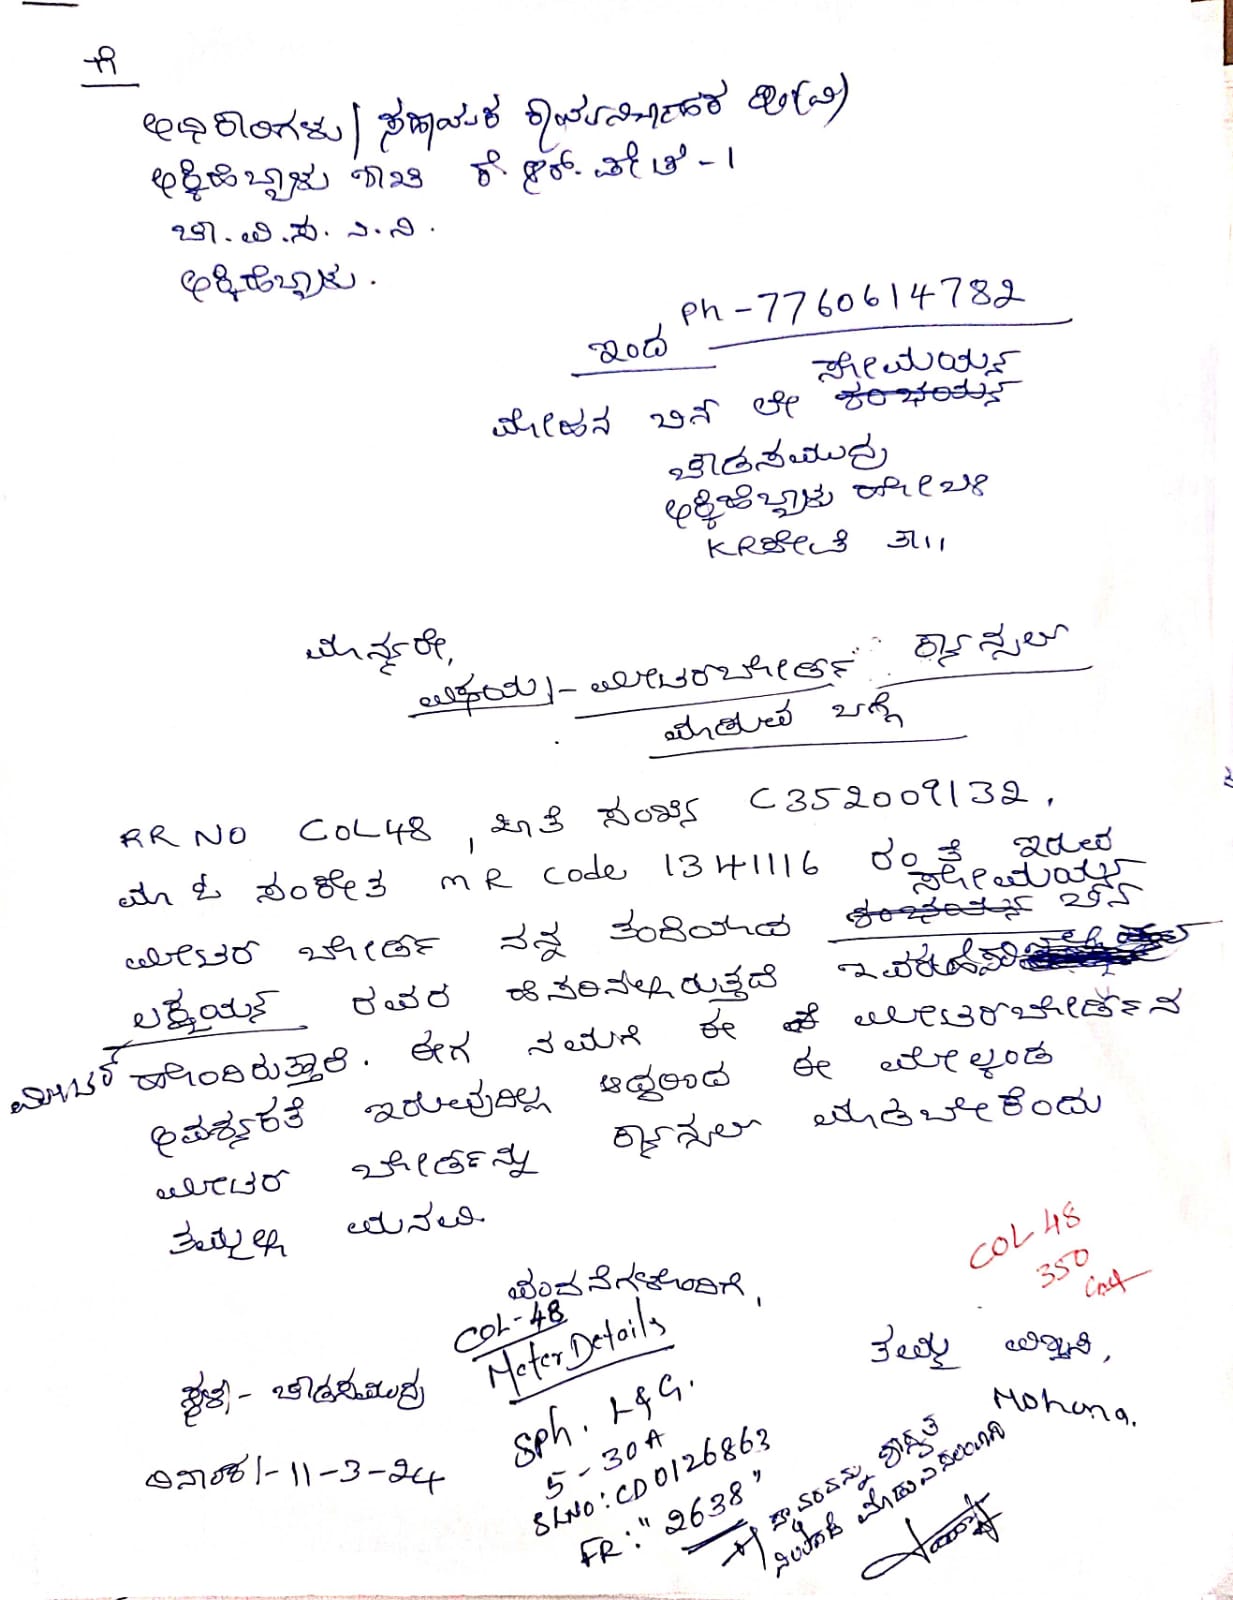 ಗೆ
ಅಧಿಕಾರಿಗಳು / ಸಹಾಯಕ ಕಾರ್ಯನಿರ್ವಾಹಕ ಅಂ(ವಿ)
ಅಕ್ಕಿಹೆಬ್ಬಾಳು ಶಾಖೆ ಕೆ. ಆರ್. ಪೇಟೆ - 1
ಚಾ. ವಿ. ಸ. ನಿ. ನಿ.
ಅಕ್ಕಿಹೆಬ್ಬಾಳು.
Ph - 7760614782
ಇಂದ
ಸೋಮಯ್ಯ
ಮೋಹನ ಬಿನ್ ಲೇ
ಚೌಡಸಮುದ್ರ
ಅಕ್ಕಿಹೆಬ್ಬಾಳು ಹೋಬಳಿ
KRಪೇಟೆ ತಾ॥
ಮಾನ್ಯರೇ,
ವಿಷಯ :- ಮೀಟರಬೋರ್ಡ್ ಕ್ಯಾನ್ಸಲ್
ಮಾಡುವ ಬಗ್ಗೆ
RR NO COL48, ಖಾತೆ ಸಂಖ್ಯೆ C352009132,
ಮಾ ಓ ಸಂಕೇತ MR Code 1341116 ರಂತೆ ಇರುವ
ಸೋಮಯ್ಯ
ಮೀಟರ್ ಬೋರ್ಡ್ ನನ್ನ ತಂದೆಯಾದ ಬಿನ್
ಲಕ್ಕಯ್ಯ ರವರ ಹೆಸರಿನಲ್ಲಿರುತ್ತದೆ ಇವರು
ಹೊಂದಿರುತ್ತಾರೆ. ಈಗ ನಮಗೆ ಈ ಮೀಟರಬೋರ್ಡ್‌ನ
ಅವಶ್ಯಕತೆ ಇರುವುದಿಲ್ಲ ಆದ್ದರಿಂದ ಈ ಮೇಲ್ಕಂಡ
ಮೀಟರ್ ಬೋರ್ಡನ್ನು ಕ್ಯಾನ್ಸಲ್ ಮಾಡಬೇಕೆಂದು
ತಮ್ಮಲ್ಲಿ ಮನವಿ.
COL 48
350
ವಂದನೆಗಳೊಂದಿಗೆ,
COL-48
Meter Details
ತಮ್ಮ ವಿಶ್ವಾಸಿ,
ಸ್ಥಳ :- ಚೌಡಸಮುದ್ರ
Sph. L&G.
Mohana.
5-30A
ದಿನಾಂಕ :- 11-3-24
SLNO: CD0126863
FR: "2638"